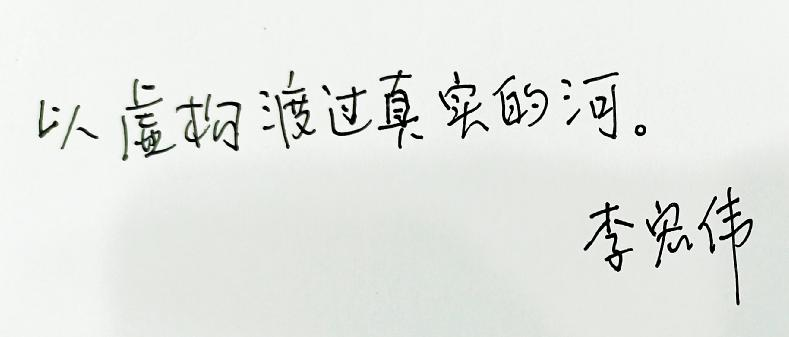 以虚构渡过真实的河。
李宏伟